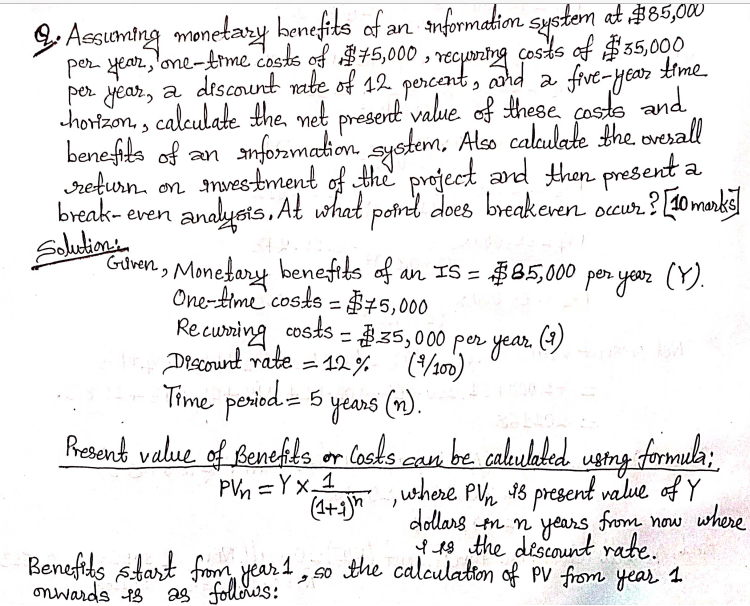 Q. Assuming monetary benefits of an information system at $85,000
per year, one-time costs of $75,000, recurring costs of $35,000
per year, a discount rate of 12 percent, and a five-year time
horizon, calculate the net present value of these costs and
benefits of an information system. Also calculate the overall
return on investment of the project and then present a
break-even analysis. At what point does breakeven occur? [10 marks]
Solution:
Given, Monetary benefits of an IS = $85,000 per year (Y).
One-time costs = $75,000
Recurring costs = $35,000 per year (i)
Discount rate = 12% (i/100)
Time period = 5 years (n).
Present value of Benefits or Costs can be calculated using formula;
PVn = Y × 1/(1+i)^n, where PVn is present value of Y
dollars in n years from now where
i is the discount rate.
Benefits start from year 1, so the calculation of PV from year 1
onwards is as follows: